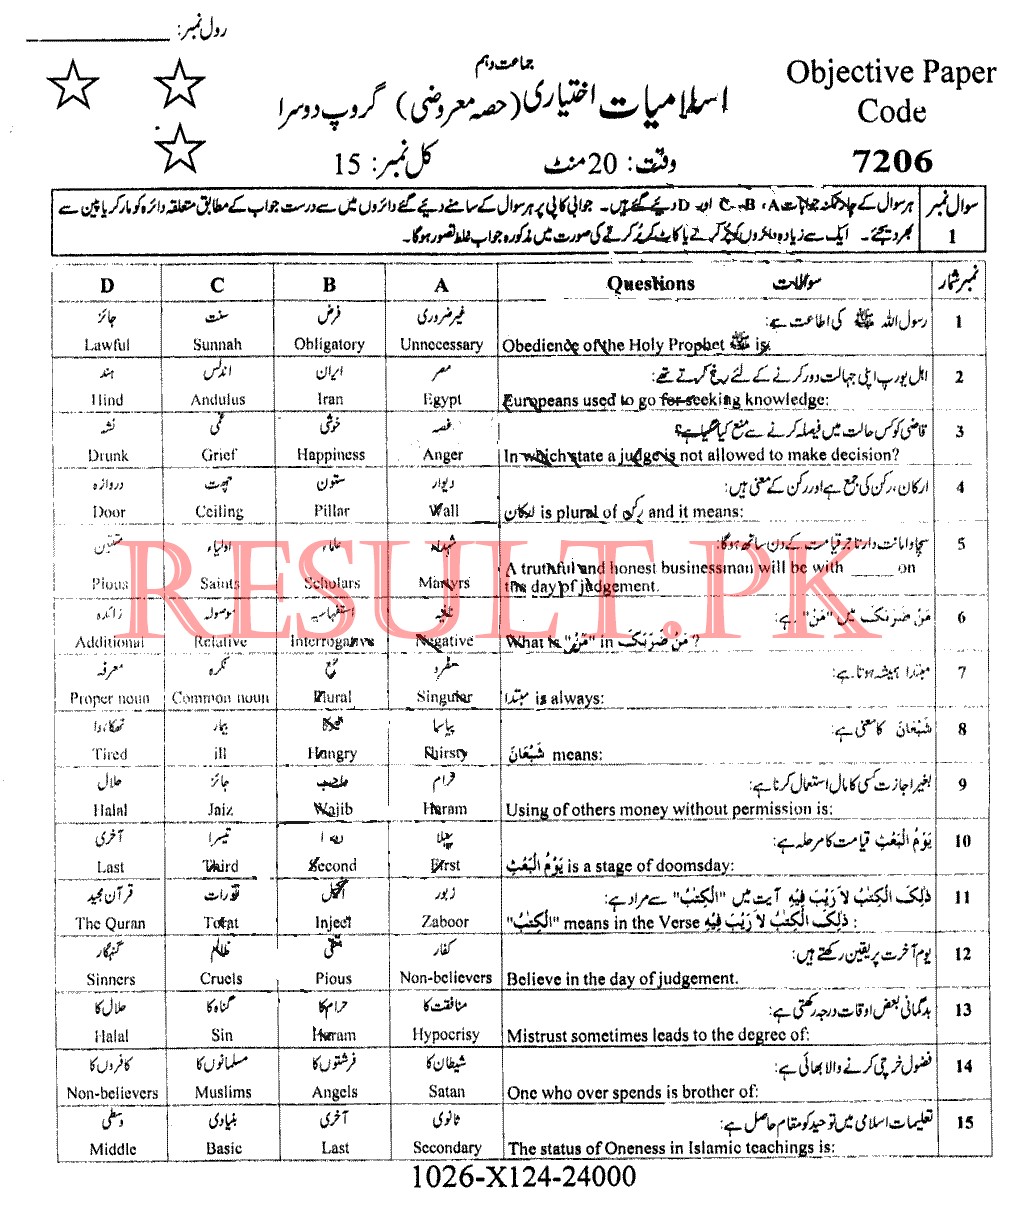 رول نمبر: ____________
جماعت دہم
Objective Paper
Code
7206
اسلامیات اختیاری (حصہ معروضی) گروپ دوسرا
وقت: 20 منٹ کل نمبر: 15
سوال نمبر 1
ہر سوال کے چار ممکنہ جوابات A، B، C اور D دیئے گئے ہیں۔ جوابی کاپی پر ہر سوال کے سامنے دیئے گئے دائروں میں سے درست جواب کے مطابق متعلقہ دائرہ کو مارکر یا پین سے
بھر دیجئے۔ ایک سے زیادہ دائروں کو پُر کرنے یا کاٹ کر پُر کرنے کی صورت میں مذکورہ جواب غلط تصور ہوگا۔
D C B A Questions سوالات نمبر شمار
جائز سنت فرض غیر ضروری رسول اللہ ﷺ کی اطاعت ہے: 1
Lawful Sunnah Obligatory Unnecessary Obedience of the Holy Prophet ﷺ is:
ہند اندلس ایران مصر اہل یورپ اپنی جہالت دور کرنے کے لئے رخ کرتے تھے: 2
Hind Andulus Iran Egypt Europeans used to go for seeking knowledge:
نشہ غمی خوشی غصہ قاضی کو کس حالت میں فیصلہ کرنے سے منع کیا گیا ہے؟ 3
Drunk Grief Happiness Anger In which state a judge is not allowed to make decision?
دروازہ چھت ستون دیوار ارکان، رکن کی جمع ہے اور رکن کے معنی ہیں: 4
Door Ceiling Pillar Wall ارکان is plural of رکن and it means:
متقین اولیاء علماء شہداء سچا و امانت دار تاجر قیامت کے دن ساتھ ہوگا: 5
Pious Saints Scholars Martyrs A truthful and honest businessman will be with _____ on
the day of judgement.
زائدہ موصولہ استفہامیہ نافیہ مَنْ ضَرَبَکَ میں "مَنْ" ہے: 6
Additional Relative Interrogative Negative What is "مَنْ" in مَنْ ضَرَبَکَ ?
معرفہ نکرہ جمع مفرد مبتدا ہمیشہ ہوتا ہے: 7
Proper noun Common noun Plural Singular مبتدا is always:
تھکا ہوا بیمار بھوکا پیاسا شَبْعَانَ کا معنی ہے: 8
Tired ill Hungry Thirsty شَبْعَانَ means:
حلال جائز واجب حرام بغیر اجازت کسی کا مال استعمال کرنا ہے: 9
Halal Jaiz Wajib Haram Using of others money without permission is:
آخری تیسرا دوسرا پہلا یَوْمُ الْبَعْثِ قیامت کا مرحلہ ہے: 10
Last Third Second First یَوْمُ الْبَعْثِ is a stage of doomsday:
قرآن مجید تورات انجیل زبور ذٰلِکَ الْکِتٰبُ لَا رَیْبَ فِیْهِ آیت میں "الْکِتٰبُ" سے مراد ہے: 11
The Quran Torat Inject Zaboor "الْکِتٰبُ" means in the Verse ذٰلِکَ الْکِتٰبُ لَا رَیْبَ فِیْهِ :
گنہگار ظالم متقی کفار یوم آخرت پر یقین رکھتے ہیں: 12
Sinners Cruels Pious Non-believers Believe in the day of judgement.
حلال کا گناہ کا حرام کا منافقت کا بدگمانی بعض اوقات درجہ رکھتی ہے: 13
Halal Sin Haram Hypocrisy Mistrust sometimes leads to the degree of:
کافروں کا مسلمانوں کا فرشتوں کا شیطان کا فضول خرچی کرنے والا بھائی ہے: 14
Non-believers Muslims Angels Satan One who over spends is brother of:
وسطی بنیادی آخری ثانوی تعلیمات اسلامی میں توحید کو مقام حاصل ہے: 15
Middle Basic Last Secondary The status of Oneness in Islamic teachings is:
1026-X124-24000
RESULT.PK